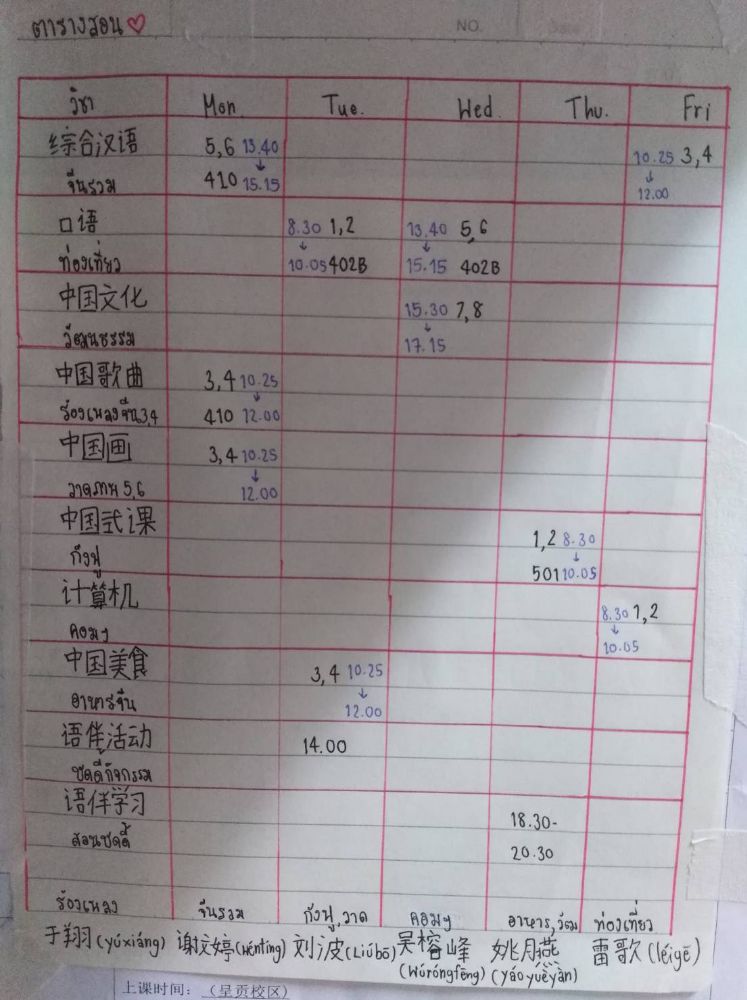 ตารางสอน ♡
NO.
วิชา Mon. Tue. Wed. Thu. Fri
综合汉语 5,6 13.40 10.25 3,4
↓ ↓
จีนรวม 410 15.15 12.00
口语 8.30 1,2 13.40 5,6
↓ ↓
ท่องเที่ยว 10.05 402B 15.15 402B
中国文化 15.30 7,8
↓
วัฒนธรรม 17.15
中国歌曲 3,4 10.25
↓
ร้องเพลงจีน 3,4 410 12.00
中国画 3,4 10.25
↓
วาดภาพ 5,6 12.00
中国武课 1,2 8.30
↓
กังฟู 501 10.05
计算机 8.30 1,2
↓
คอมฯ 10.05
中国美食 3,4 10.25
↓
อาหารจีน 12.00
语伴活动 14.00
บัดดี้กิจกรรม
语伴学习 18.30-
สอนบัดดี้ 20.30
ร้องเพลง จีนรวม กังฟู,วาด คอมฯ อาหาร,วัฒ ท่องเที่ยว
于翔(yúxiáng) 谢文婷(wéntíng) 刘波(Liúbō) 吴榕峰 姚月燕 雷歌(léigē)
(Wúróngfēng) (yáoyuèyàn)
上课时间： (呈贡校区)